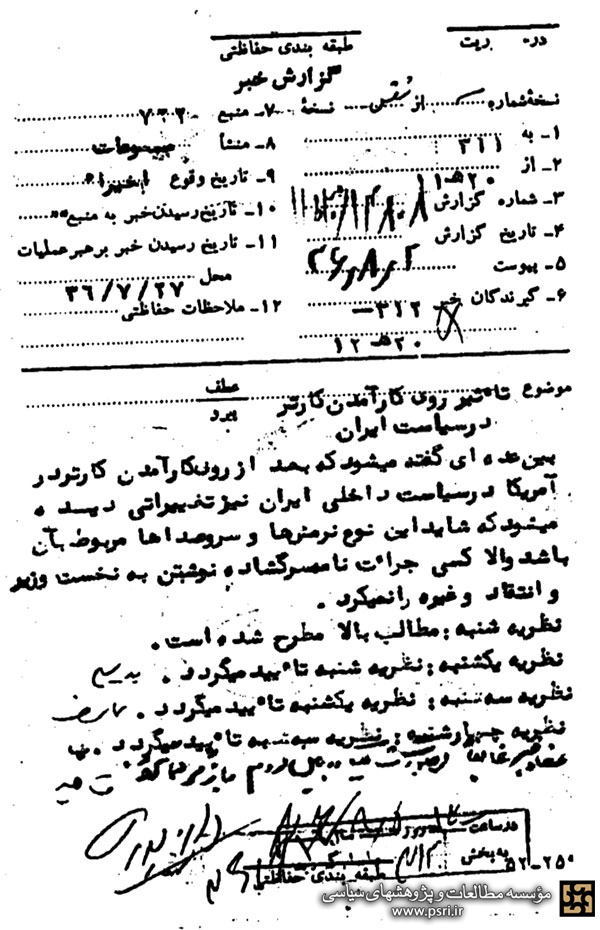 طبقه بندی حفاظتی
گزارش خبر
نسخه شماره از نسخه
۱ـ به ۳۱۱
۲ـ از ۲۰ هـ ۱۱
۳ـ شماره گزارش
۴ـ تاریخ گزارش
۵ـ پیوست
۶ـ گیرندگان خبر ۳۱۲
۲۰ هـ ۱۲
۷ـ منبع
۸ـ منشأ
۹ـ تاریخ وقوع اخیرا
۱۰ـ تاریخ رسیدن خبر به منبع
۱۱ـ تاریخ رسیدن خبر برهبر عملیات
محل ۳۶/۷/۲۷
۱۲ـ ملاحظات حفاظتی
موضوع تاثیر روی کارآمدن کارتر
در سیاست ایران
عطف
پیرو
بین عده ای گفته میشود که بعد از روی کارآمدن کارتر در
آمریکا در سیاست داخلی ایران نیز تغییراتی دیده
میشود که شاید این نوع نرمش‌ها و سروصداها مربوط بآن
باشد والا کسی جرات نامه سرگشاده نوشتن به نخست وزیر
و انتقاد وغیره را نمیکرد .
نظریه شنبه : مطالب بالا مطرح شده است .
نظریه یکشنبه : نظریه شنبه تائید میگردد .
نظریه سه شنبه : نظریه یکشنبه تائید میگردد .
نظریه چهارشنبه : نظریه سه شنبه تائید میگردد .
در ساعت روز
به بخش ۳۱۲
۲۵۰-۵۲
طبقه بندی حفاظتی
مؤسسه مطالعات و پژوهشهای سیاسی
www.psri.ir